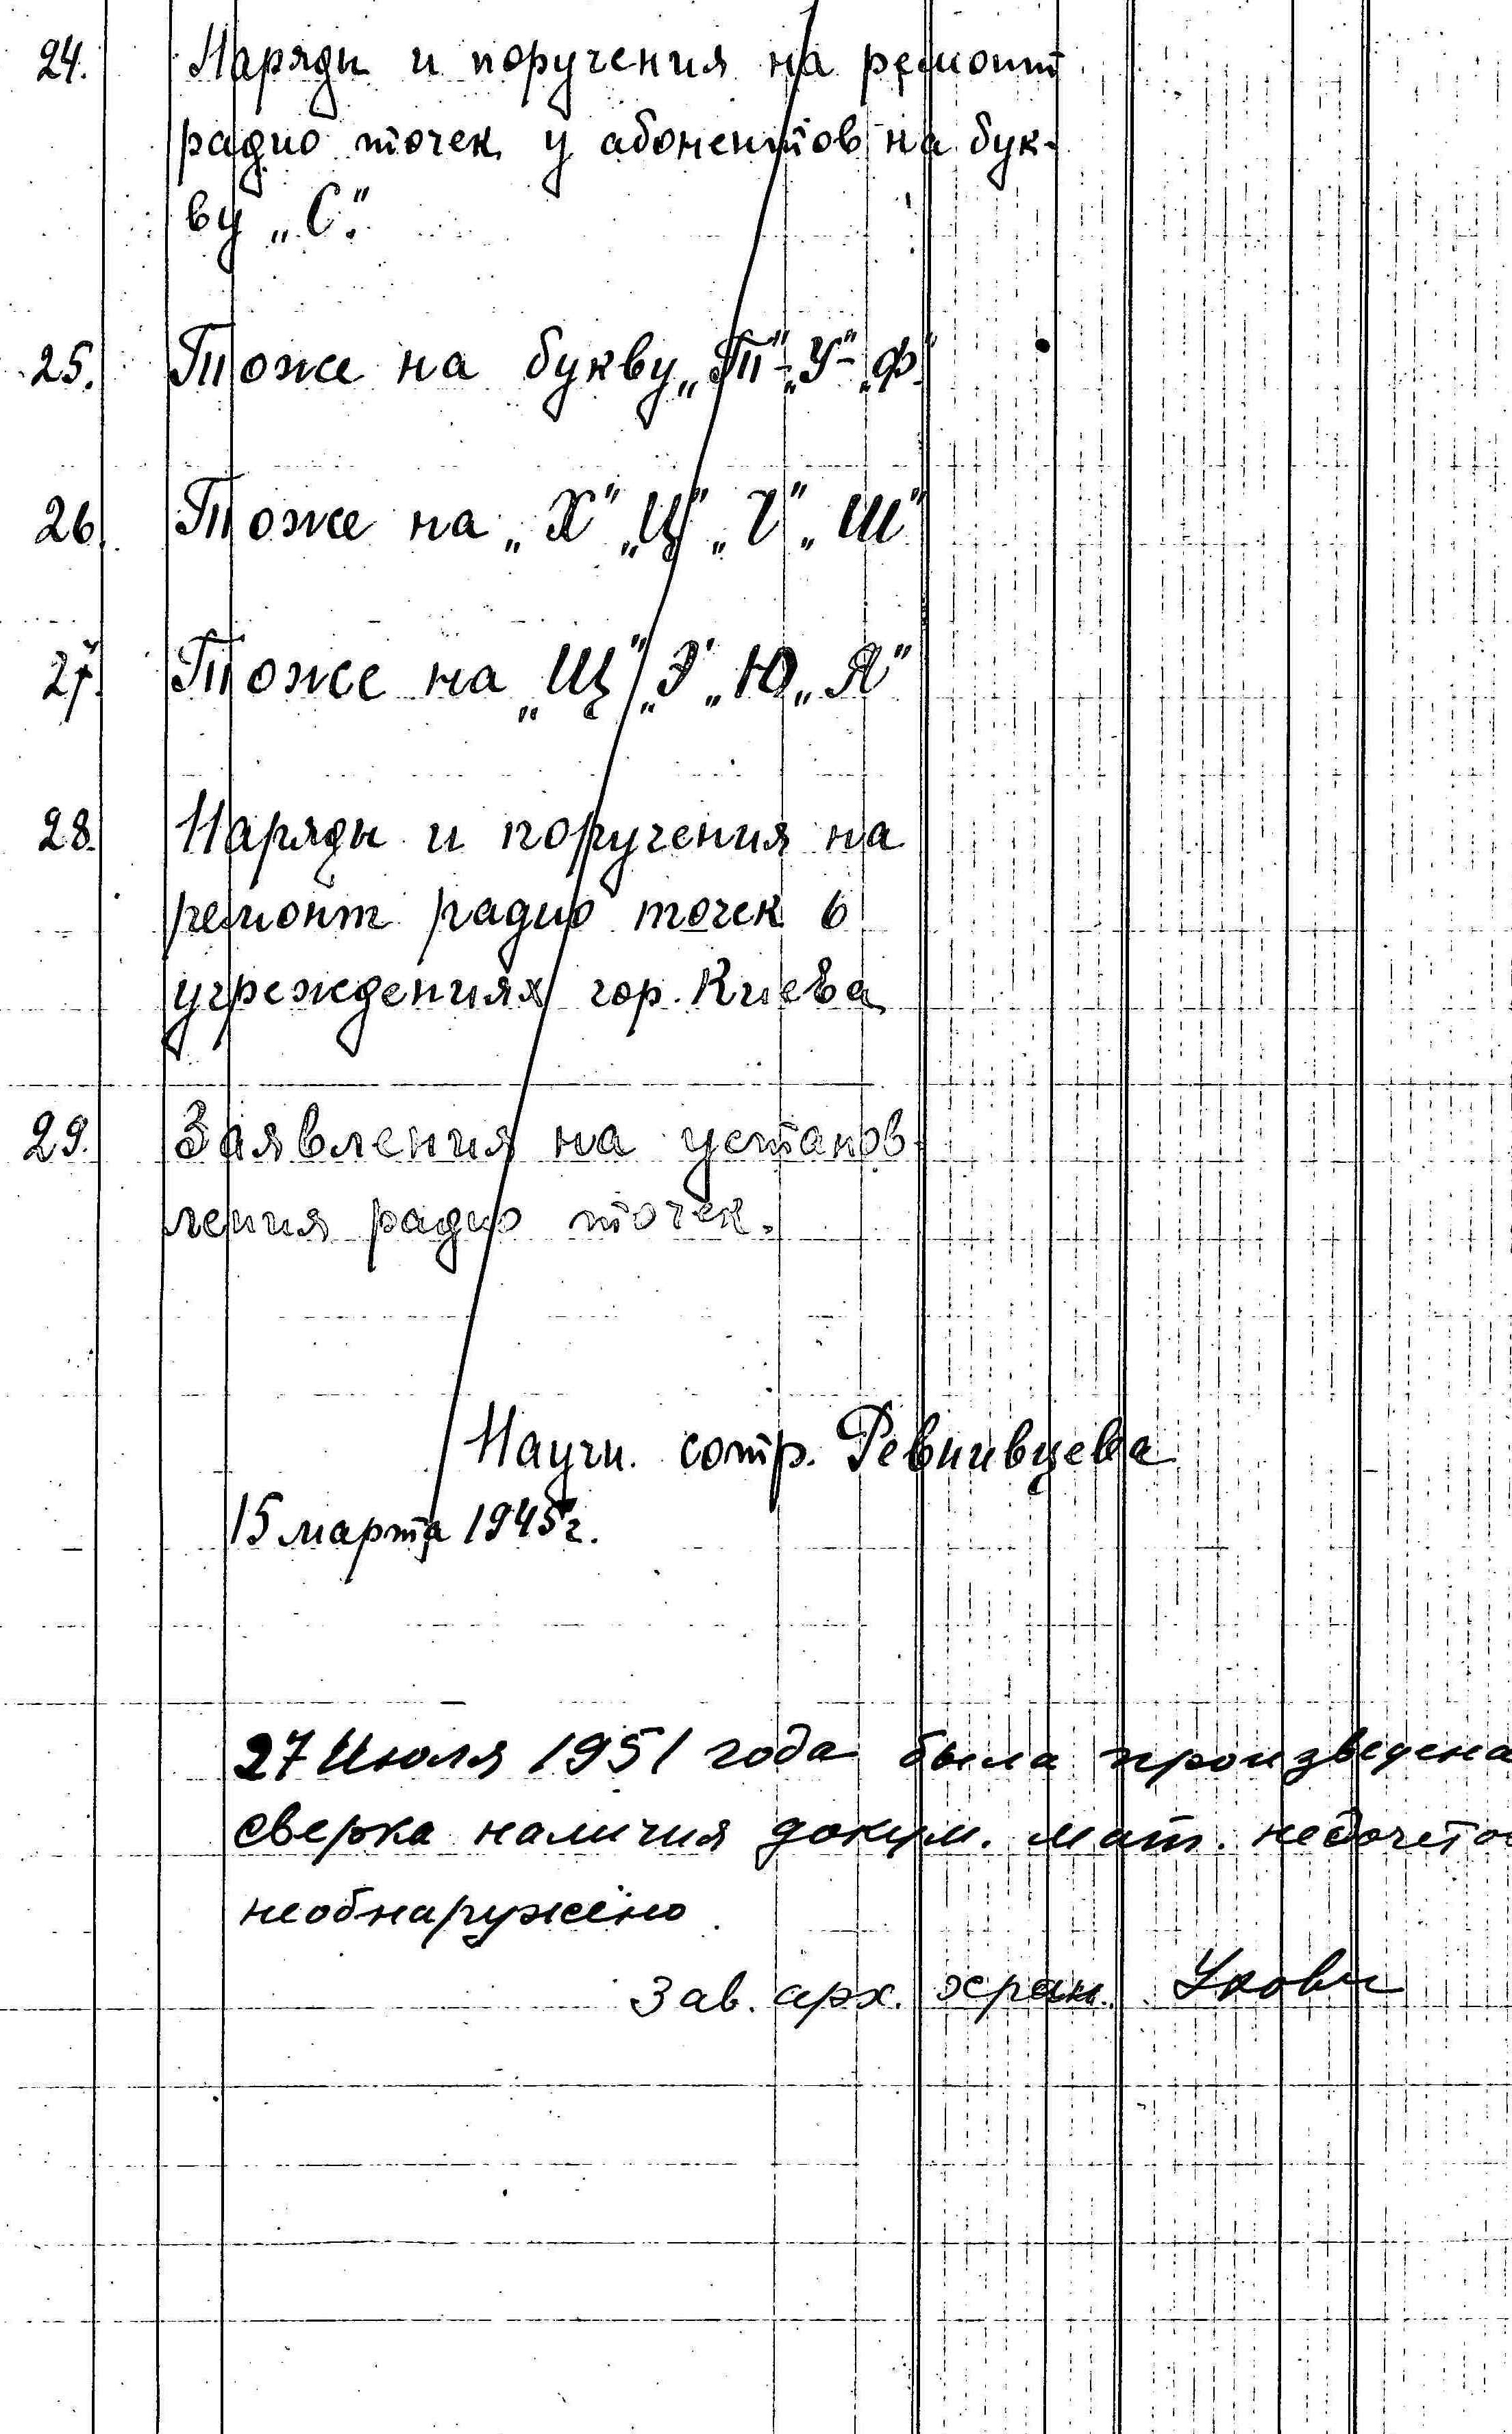 24. Наряды и поручения на ремонт
радио точек у абонентов на бук-
ву „С".
25. Тоже на букву „Т"-„У"-„Ф"
26. Тоже на „Х" „Ц" „Ч" „Ш"
27. Тоже на „Щ" „Э" „Ю „Я"
28. Наряды и поручения на
ремонт радио точек в
учреждениях гор. Киева
29. Заявления на установ-
ления радио точек.
Научн. сотр. Ревнивцева
15 марта 1945 г.
27 Июля 1951 года была произведена
сверка наличия докум. мат. недочетов
необнаружено
Зав. арх. хран.